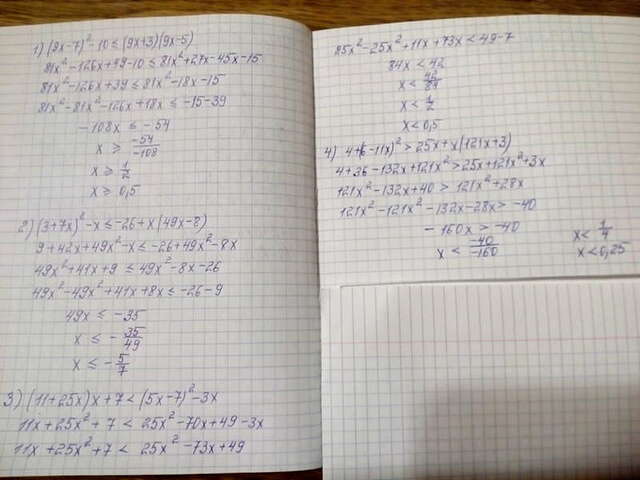 1) (9x-7)² - 10 ≤ (9x+3)(9x-5)
81x² - 126x + 49 - 10 ≤ 81x² + 27x - 45x - 15
81x² - 126x + 39 ≤ 81x² - 18x - 15
81x² - 81x² - 126x + 18x ≤ -15 - 39
-108x ≤ -54
x ≥ -54/-108
x ≥ 1/2
x ≥ 0,5
2) (3+7x)² - x ≤ -26 + x(49x-8)
9 + 42x + 49x² - x ≤ -26 + 49x² - 8x
49x² + 41x + 9 ≤ 49x² - 8x - 26
49x² - 49x² + 41x + 8x ≤ -26 - 9
49x ≤ -35
x ≤ - 35/49
x ≤ - 5/7
3) (11+25x)x + 7 < (5x-7)² - 3x
11x + 25x² + 7 < 25x² - 70x + 49 - 3x
11x + 25x² + 7 < 25x² - 73x + 49
25x² - 25x² + 11x + 73x < 49 - 7
84x < 42
x < 42/84
x < 1/2
x < 0,5
4) 4 + (6 - 11x)² > 25x + x(121x+3)
4 + 36 - 132x + 121x² > 25x + 121x² + 3x
121x² - 132x + 40 > 121x² + 28x
121x² - 121x² - 132x - 28x > -40
- 160x > -40
x < -40/-160
x < 1/4
x < 0,25